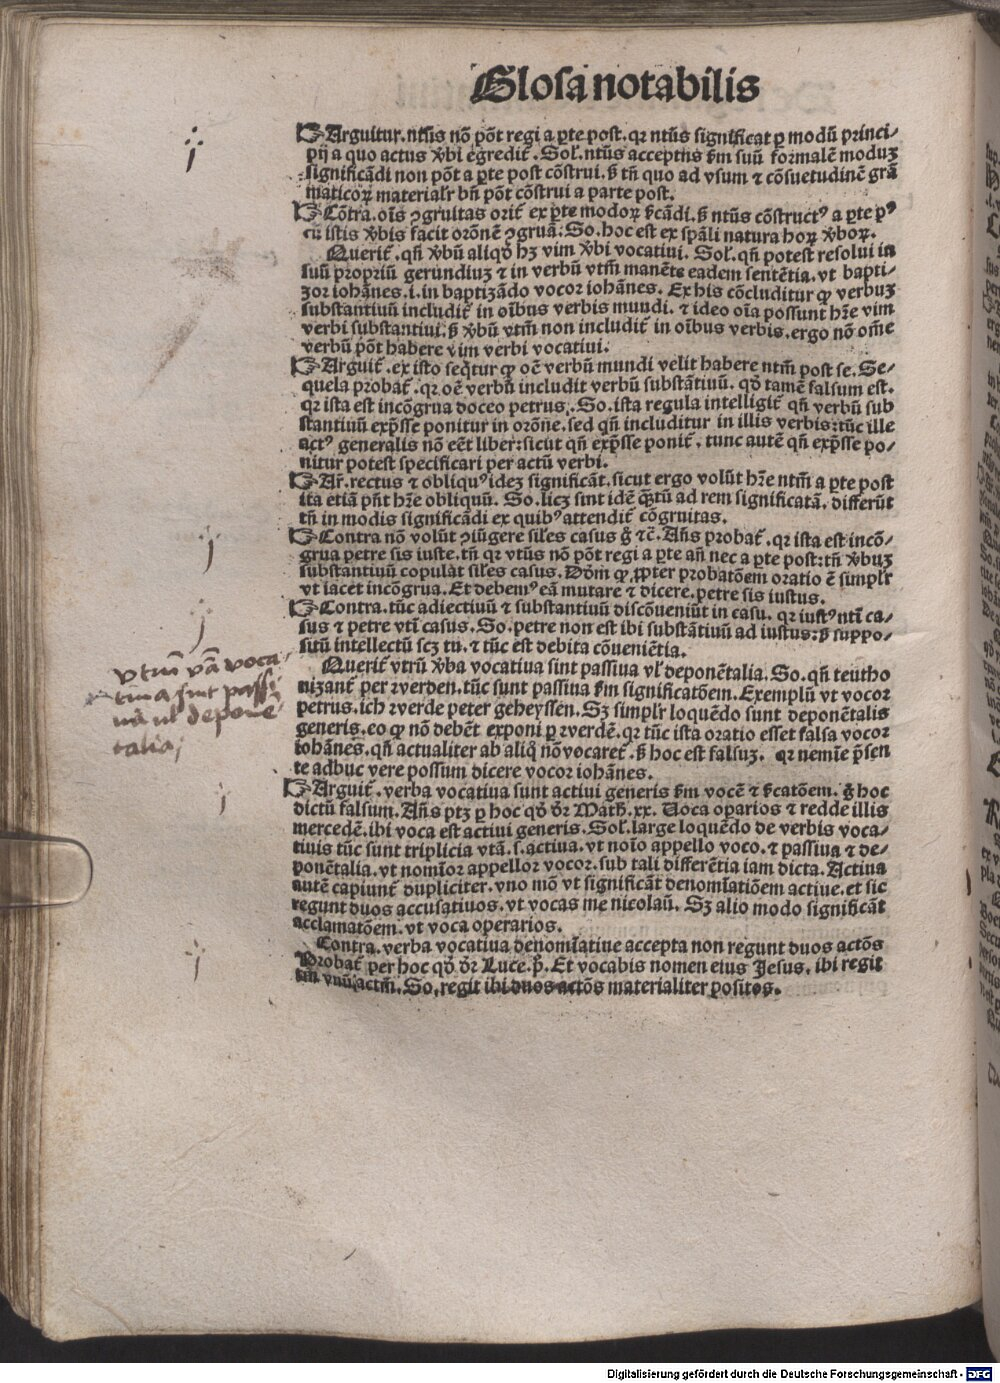 Glosa notabilis
Arguitur. ntũs nõ põt regi a ꝑte post. qꝛ ntũs significat ꝑ modũ princi⸗
pij a quo actus ꝟbi egredit᷑. Sol. ntũs acceptus ẜm suũ formalẽ moduȝ
significãdi non põt a ꝑte post cõstrui. ẜ tñ quo ad vsum ⁊ cõsuetudinẽ grã
maticoꝝ materialr bñ põt cõstrui a parte post.
Cõtra. oĩs ꝯgruitas orit᷑ ex ꝑte modoꝝ ẜcãdi. ẜ ntũs cõstructꝰ a ꝑte pꝰ
cũ istis ꝟbis facit orõnẽ ꝯgruã. So. hoc est ex spãli natura hoꝝ ꝟboꝝ.
Querit᷑. qñ ꝟbũ aliqõ hȝ vim ꝟbi vocatiui. Sol. qñ potest resolui in
suũ propriũ gerundiuȝ ⁊ in verbũ vtm̃ manẽte eadem sentẽtia. vt bapti⸗
zor iohãnes. i. in baptizãdo vocor iohãnes. Ex his cõcluditur ꝙ verbuȝ
substantiuũ includit᷑ in oĩbus verbis mundi. ⁊ ideo oĩa possunt hr̃e vim
verbi substantiui. ẜ ꝟbũ vtm̃ non includit᷑ in oĩbus verbis. ergo nõ om̃e
verbũ põt habere vim verbi vocatiui.
Arguit᷑. ex isto seq̃tur ꝙ oẽ verbũ mundi velit habere ntm̃ post se. Se⸗
quela probat᷑. qꝛ oẽ verbũ includit verbũ substãtiuũ. qđ tamẽ falsum est.
qꝛ ista est incõgrua doceo petrus. So. ista regula intelligit᷑ qñ verbũ sub
stantiuũ exp̃sse ponitur in orõne. sed qñ includitur in illis verbis: tũc ille
actꝰ generalis nõ eẽt liber: sicut qñ exp̃sse ponit᷑. tunc autẽ qñ exp̃sse po⸗
nitur potest specificari per actũ verbi.
Ar̃. rectus ⁊ obliquꝰ ideȝ significãt. sicut ergo volũt hr̃e ntm̃ a ꝑte post
ita etiã pñt hr̃e obliquũ. So. licȝ sint idẽ q̃ȝtũ ad rem significatã. differũt
tñ in modis significãdi ex quibꝰ attendit᷑ cõgruitas.
Contra nõ volũt ꝯiũgere siles casus g̊ ⁊c̃. Añs probat᷑. qꝛ ista est incõ⸗
grua petre sis iuste. tñ qꝛ vtũs nõ põt regi a ꝑte añ nec a ꝑte post: tñ ꝟbuȝ
substantiuũ copulat siles casus. Dõm ꝙ ꝓpter probatõem oratio ẽ simplr
vt iacet incõgrua. Et debemꝰ eã mutare ⁊ dicere. petre sis iustus.
Contra. tũc adiectiuũ ⁊ substantiuũ discõueniũt in casu. qꝛ iustꝰ nti ca⸗
sus ⁊ petre vti casus. So. petre non est ibi substãtiuũ ad iustus: ẜ suppo⸗
situ intellectũ scȝ tu. ⁊ tũc est debita cõueniẽtia.
Querit᷑ vtrũ ꝟba vocatiua sint passiua vl deponẽtalia. So. qñ teutho
nizant᷑ per werden. tũc sunt passiua ẜm significatõem. Exemplũ vt vocor
petrus. ich werde peter geheyssen. Sȝ simplr loquẽdo sunt deponẽtalis
generis. eo ꝙ nõ debẽt exponi ꝑ werdẽ. qꝛ tũc ista oratio esset falsa vocor
iohãnes. qñ actualiter ab aliq̊ nõ vocaret᷑. ẜ hoc est falsuȝ. qꝛ nemĩe p̃sen
te adhuc vere possum dicere vocor iohãnes.
Arguit᷑. verba vocatiua sunt actiui generis ẜm vocẽ ⁊ ẜcatõem. g̊ hoc
dictũ falsum. Añs ptȝ ꝑ hoc qđ dr̃ Math. xx. Uoca oparios ⁊ redde illis
mercedẽ. ibi voca est actiui generis. Sol. large loquẽdo de verbis voca⸗
tiuis tũc sunt triplicia vtã. s. actiua. vt noĩo appello voco. ⁊ passiua ⁊ de⸗
ponẽtalia. vt nomĩor appellor vocor. sub tali differẽtia iam dicta. Actiua
autẽ capiunt᷑ dupliciter. vno mõ vt significãt denomĩatiõem actiue. et sic
regunt duos accusatiuos. vt vocas me nicolaũ. Sȝ alio modo significãt
acclamatõem. vt voca operarios.
Contra. verba vocatiua denomĩatiue accepta non regunt duos actõs
Probat᷑ per hoc qđ dr̃ Luce. p̃. Et vocabis nomen eius Jesus. ibi regit
tm̃ vnũ actm̃. So. regit ibi duos actõs materialiter positos.
vtrũ vã voca
tiua sint passi
ua vl depone
talia
Digitalisierung gefördert durch die Deutsche Forschungsgemeinschaft - DFG